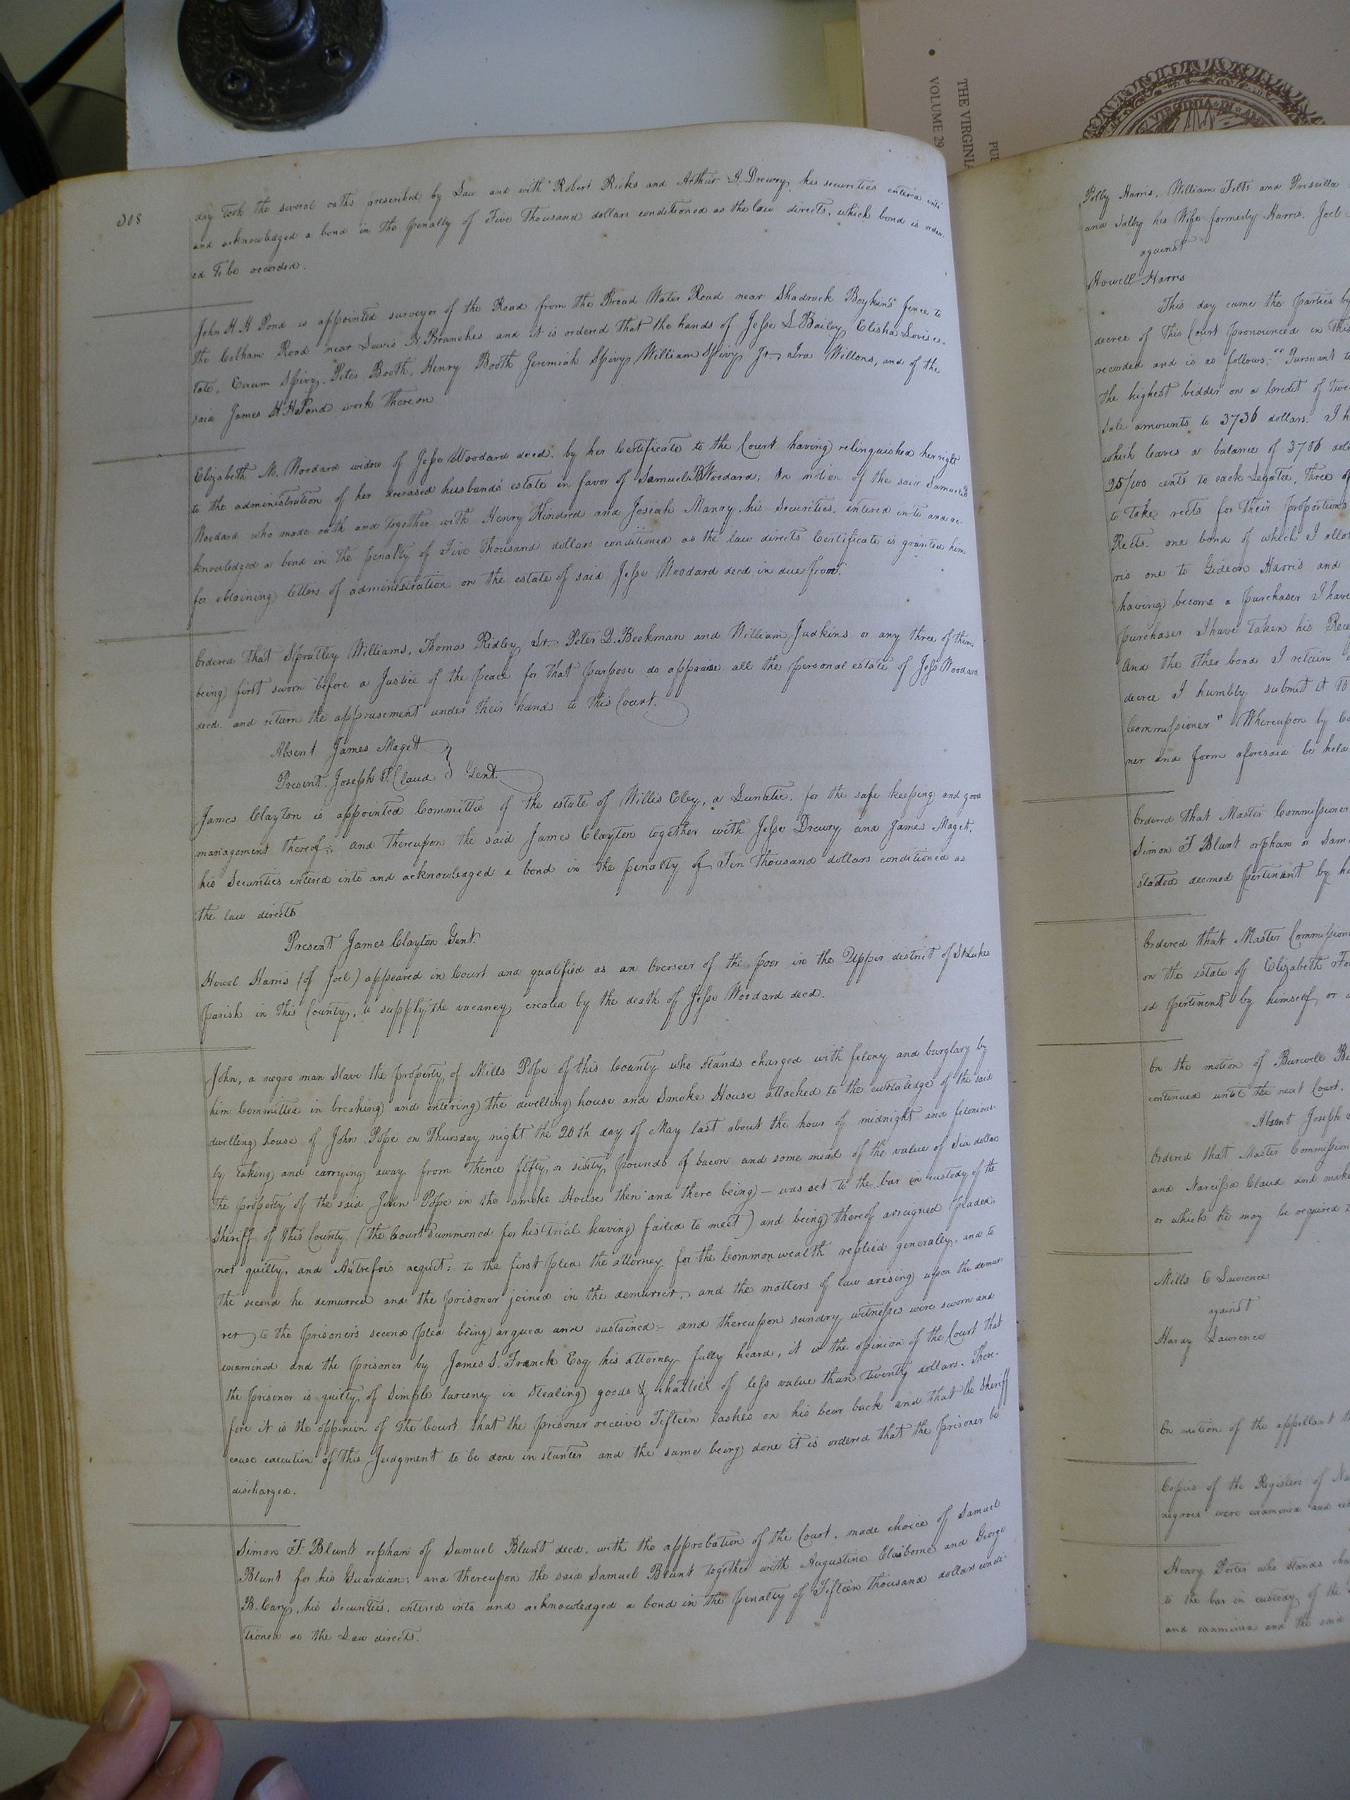 THE VIRGINIA
VOLUME 29
PU
VIRGINIA
308
day took the several oaths prescribed by Law and with Robert Ricks and Arthur A. Drewry, his securities entered into
and acknowledged a bond in the penalty of Five Thousand dollars conditioned as the law directs, which bond is order-
ed to be recorded.
John H. H Pond is appointed surveyor of the Road from the Broad Water Road near Shadrack Boykin's fence to
the Cotham Road near Lewis N Branches and it is ordered that the hands of Jesse L Bailey, Elisha Lovis es-
tate, Exum Spivy, Peter Booth, Henry Booth Jeremiah Spivy, William Spivy Jr. Ira Willons, and of the
said James H H Pond work thereon
Elizabeth M. Woodard widow of Jesse Woodard decd. by her Certificate to the Court having relinquished her right
to the administration of her deceased husband's estate in favor of Samuel B Woodard; On motion of the said Samuel B
Woodard who made oath and together with Henry Kindred and Josiah Manry, his Securities, entered into and ac-
knowledged a bond in the penalty of Five thousand dollars conditioned as the law directs Certificate is granted him
for obtaining letters of administration on the estate of said Jesse Woodard decd in due form.
Ordered that Spratley Williams, Thomas Ridley, Sr. Peter D. Beekman and William Judkins or any three of them
being first sworn before a Justice of the peace for that purpose do appraise all the personal estate of Jesse Woodard
decd. and return the appraisement under their hands to this Court.
Absent James Maget
Present Joseph T. Claud } Gent.
James Clayton is appointed Committee of the estate of Willis Eley, a Lunatic, for the safe keeping and good
management thereof; and thereupon the said James Clayton together with Jesse Drewry and James Maget,
his Securities entered into and acknowledged a bond in the penalty of Ten thousand dollars conditioned as
the law directs
Present James Clayton Gent.
Howel Harris (of Joel) appeared in Court and qualified as an Overseer of the poor in the Upper district of St. Lukes
parish in this County, to supply the vacancy created by the death of Jesse Woodard decd.
John, a negro man slave the property of Mills Pope of this County who stands charged with felony and burglary by
him Committed in breaking and entering the dwelling house and Smoke House attached to the curtaledge of the said
dwelling house of John Pope on Thursday night the 20th day of May last about the hour of midnight and felonious-
ly taking and carrying away from thence fifty, or sixty, pounds of bacon and some meal of the value of six dollars
the property of the said John Pope in the smoke House then and there being — was set to the bar in custody of the
Sheriff of this County (the Court Summoned for his trial having failed to meet) and being thereof arraigned pleaded
not guilty, and Autrefois acquit; to the first plea the attorney for the Commonwealth replied generally, and to
the second he demurred and the prisoner joined in the demurrer, and the matters of law arising upon the demur-
rer to the prisoner's second plea being argued and sustained — and thereupon sundry witnesses were sworn and
examined and the prisoner by James S. French Esq his attorney fully heard, it is the opinion of the Court that
the prisoner is guilty of simple larceny in stealing goods & chattels of less value than twenty dollars. There-
fore it is the oppinion of the Court that the prisoner receive Fifteen lashes on his bear back and that the Sheriff
cause execution of this Judgment to be done instanter and the same being done it is ordered that the prisoner be
discharged.
Simon F. Blunt orphan of Samuel Blunt decd. with the approbation of the Court, made choice of Samuel
Blunt for his Guardian; and thereupon the said Samuel Blunt together with Augustine Claiborne and George
B. Cary, his Securities, entered into and acknowledged a bond in the penalty of Fifteen thousand dollars condi-
tioned as the Law directs.
Polly Harris, William Felts and Priscilla
and Salby his Wife formerly Harris, Joel
against
Howell Harris
This day came the parties by
decree of this Court pronounced in this
recorded and is as follows; "Pursuant to
the highest bidder on a Credit of twe
Sale amounts to 3736 dollars. I h
which leaves a balance of 3706 dol
25/100 cents to each Legatee, three of
to take rects for their proportions
Rects. one bond of which I allot
ris one to Gideon Harris and
having become a purchaser I have
purchaser I have taken his Rece
And the other bond I retain
decree I humbly submit it to
Commissioner" Whereupon by Co
ner and form aforesaid be held
Ordered that Master Commissioner
Simon F Blunt orphan of Sam
stated deemed pertinent by h
Ordered that Master Commission
on the estate of Elizabeth
ed pertinent by himself, or
On the motion of Burwell
continued until the next Court.
Absent Joseph
Ordered that Master Commission
and Narcissa Claud and make
or which he may be required
Mills C Lawrence
against
Hardy Lawrence
On motion of the appellant th
Copies of the Registers of
negroes were examined and
Henry Porter who stands cha
to the bar in custody of the
and examined and the said